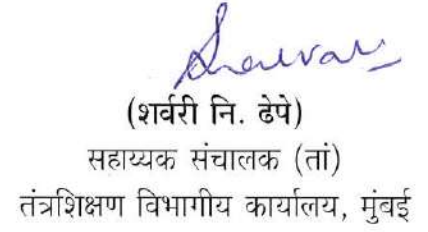 (शर्वरी नि. ढेपे)
सहाय्यक संचालक (तां)
तंत्रशिक्षण विभागीय कार्यालय, मुंबई